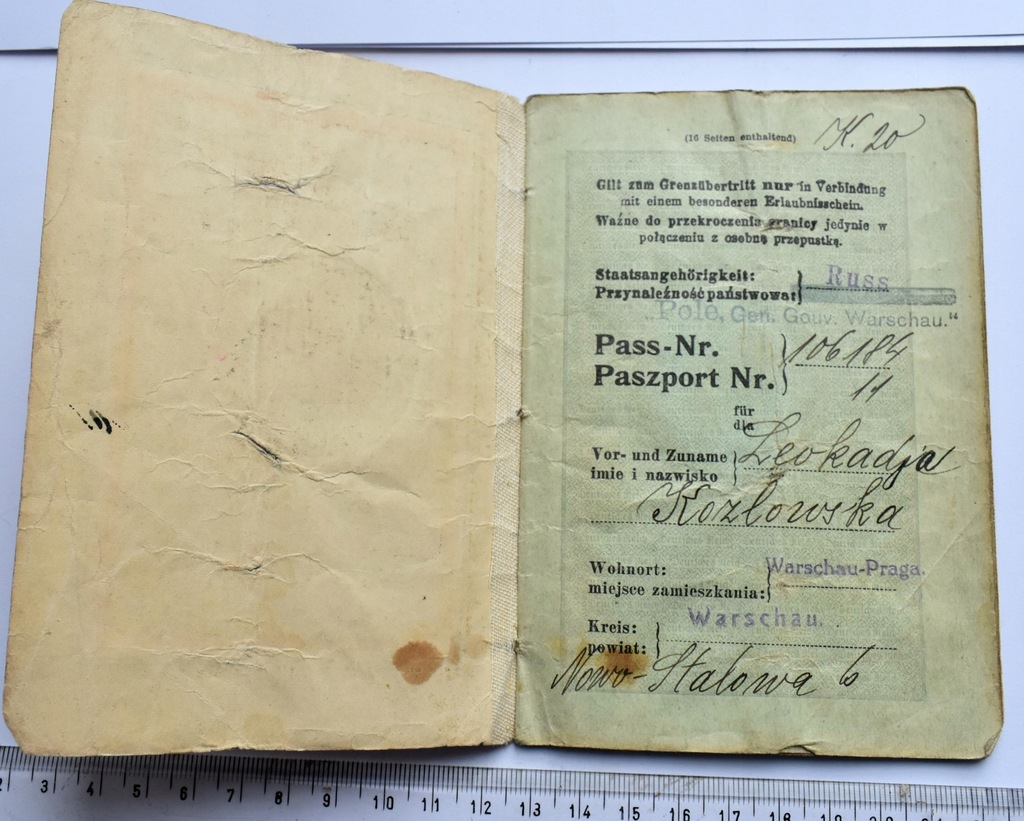 (16 Seiten enthaltend) K. 20
Gilt zum Grenzübertritt nur in Verbindung
mit einem besonderen Erlaubnisschein.
Ważne do przekroczenia granicy jedynie w
połączeniu z osobną przepustką.
Staatsangehörigkeit: Russ
Przynależność państwowa:
"Pole, Gen. Gouv. Warschau."
Pass-Nr. 106184
Paszport Nr. 11
für
dla
Vor- und Zuname Leokadja
imie i nazwisko
Kozlowska
Wohnort: Warschau-Praga.
miejsce zamieszkania:
Kreis: Warschau.
powiat:
Nowo-Stalowa 6
2 3 4 5 6 7 8 9 10 11 12 13 14 15 16 17 18 19 20 21